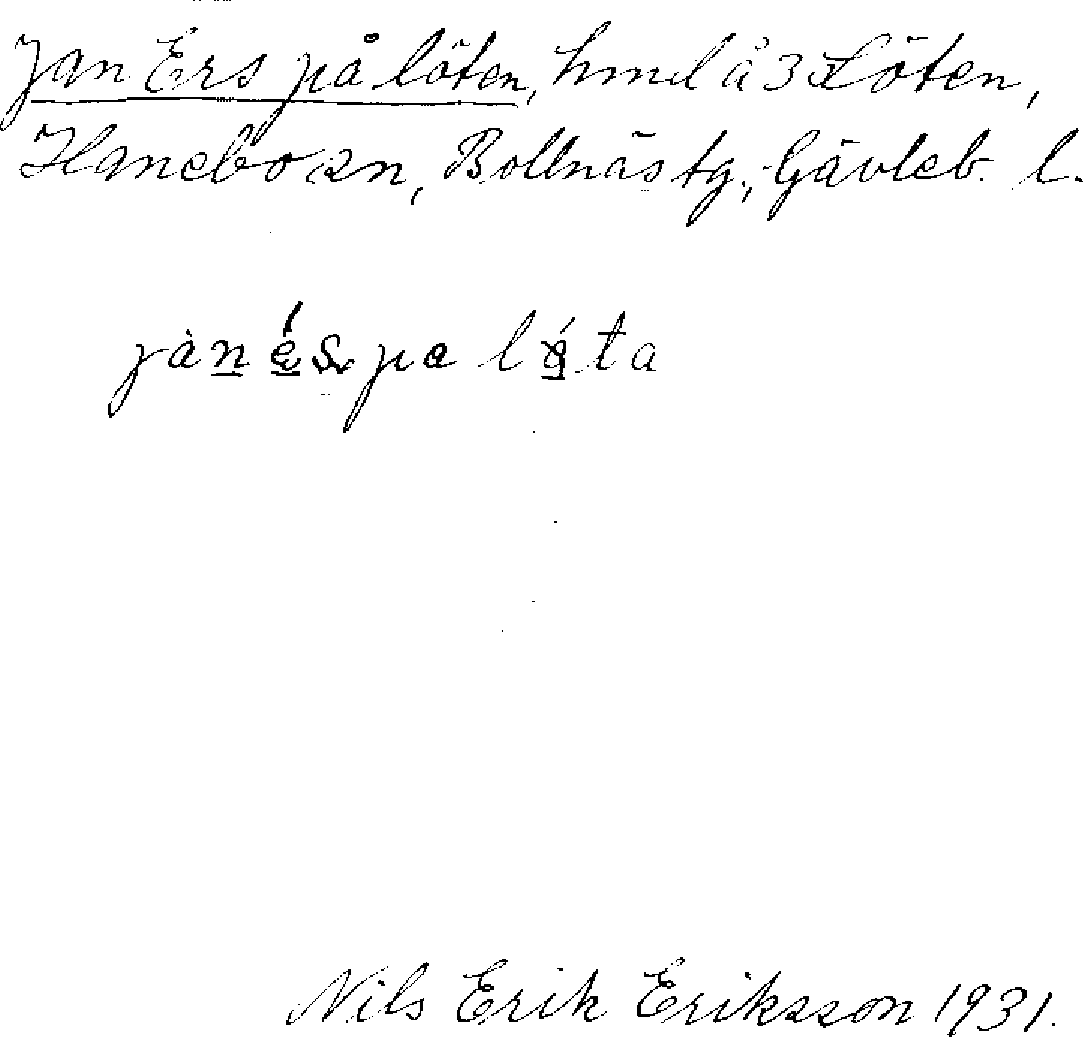 Jan Ers på löten, hmd å 3 Löten,
Hanebo sn, Bollnäs tg, Gävleb. l.
jàn és pa lǫ́ta
Nils Erik Eriksson 1931.